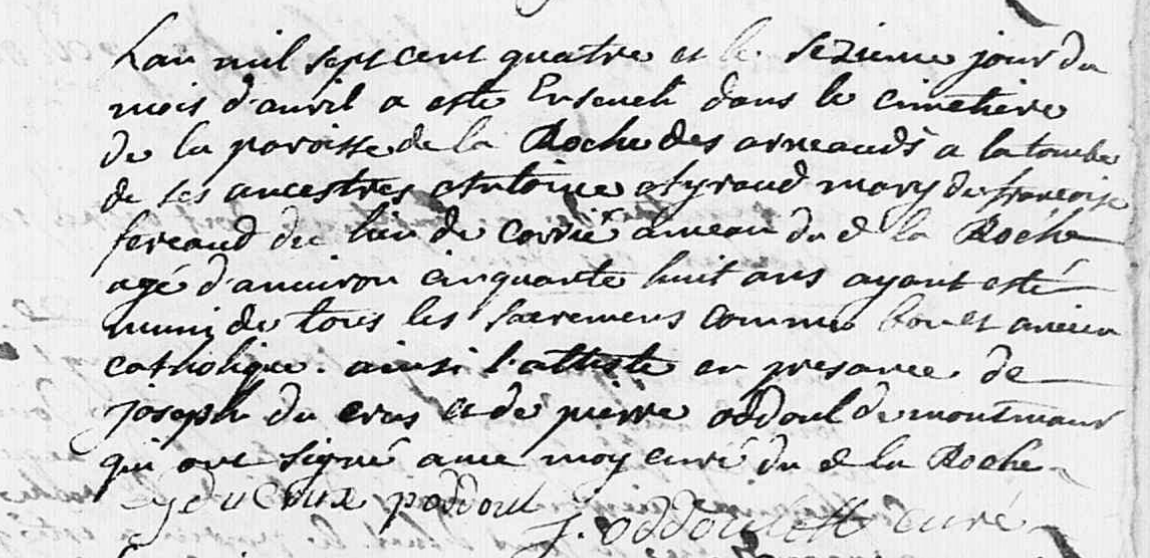 Lan mil sept cent quatre et le sezieme jour du
mois d'auril a esté Enseueli dans le cimetiere
de la paroisse de la Roche des arneauds a la tombe
de ses ancestres Antoine Ayraud mary de françoise
fereaud du lieu de corrié ameau du d la Roche
agé d'anuiron cinquante huit ans ayant esté
muni de tous les sacremens comme bon et ancien
catholique. ainsi l'atteste en presance de
joseph du crus et de pierre oddoul de montmaur
qui ont signé auec moy curé du d la Roche
poddoul J. oddoul curé